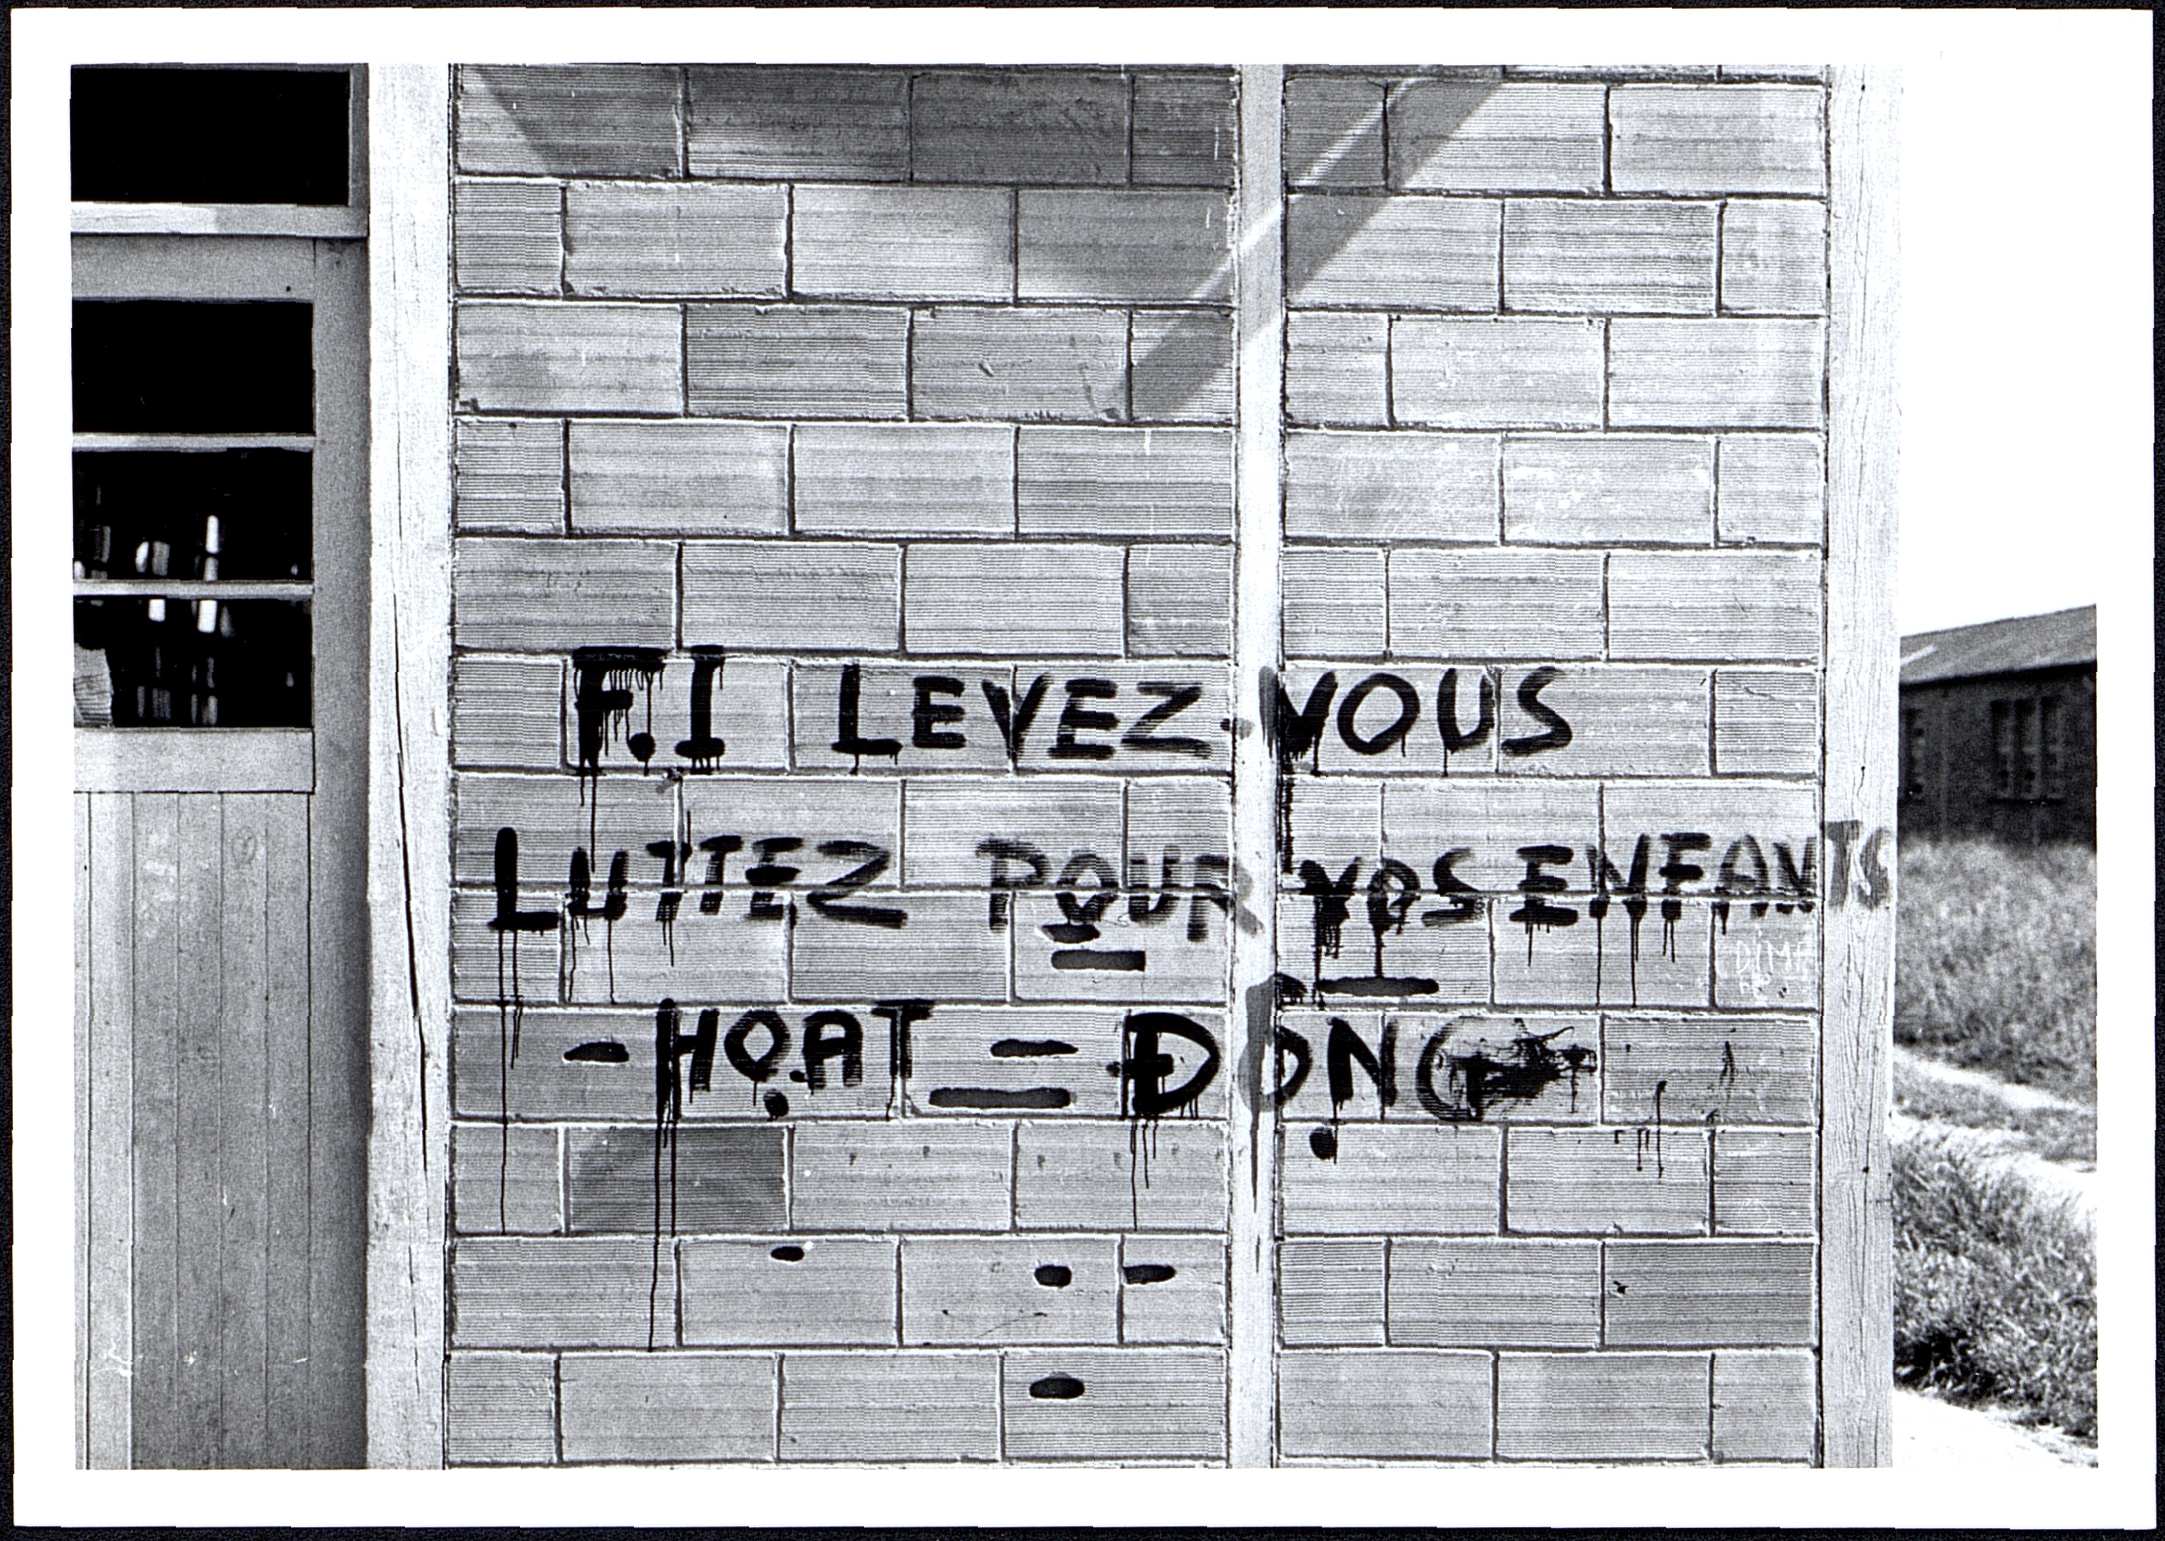 F.I LEVEZ-VOUS
LUTTEZ POUR VOS ENFANTS
- HOẠT - ĐỘNG